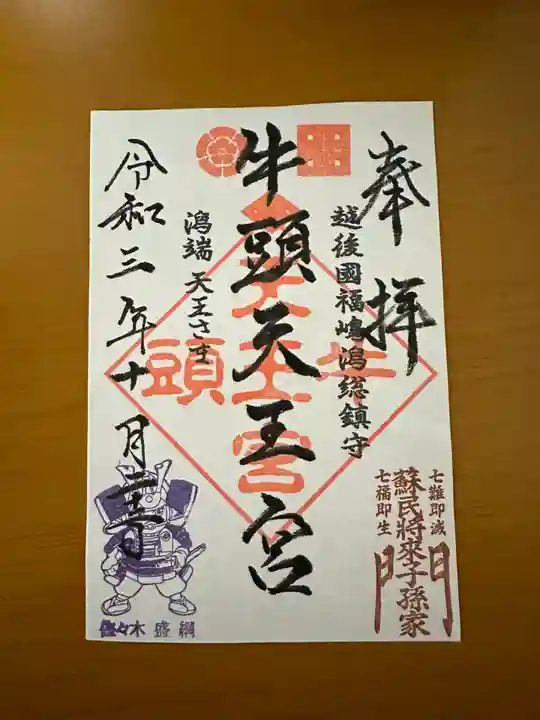 奉拝
越後國福嶋潟総鎮守
七難即滅
蘇民将来子孫家
七福即生
門
牛頭天王宮
牛頭天王宮
潟端 天王さま
令和三年十月
佐々木盛綱